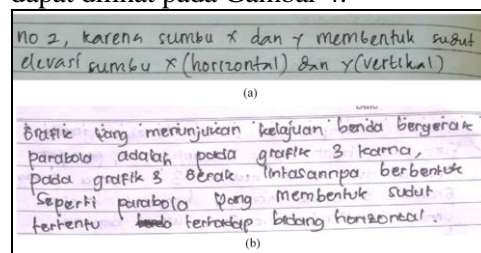 dapat dilihat pada Gambar 4.
no 2, karena sumbu x dan y membentuk sudut
elevasi sumbu x (horizontal) dan y (vertikal)
(a)
Grafik yang menunjukan kelajuan benda bergerak
parabola adalah pada grafik 3 karna,
pada grafik 3 Gerak lintasannya berbentuk
seperti parabola yang membentuk sudut
tertentu terhadap bidang horizontal.
(b)